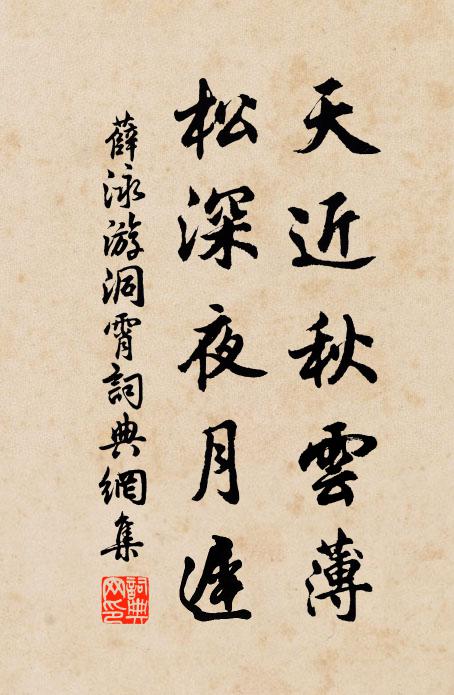 天近秋雲薄
松深夜月遲
薛泳游洞霄詞典網集
詞典網印